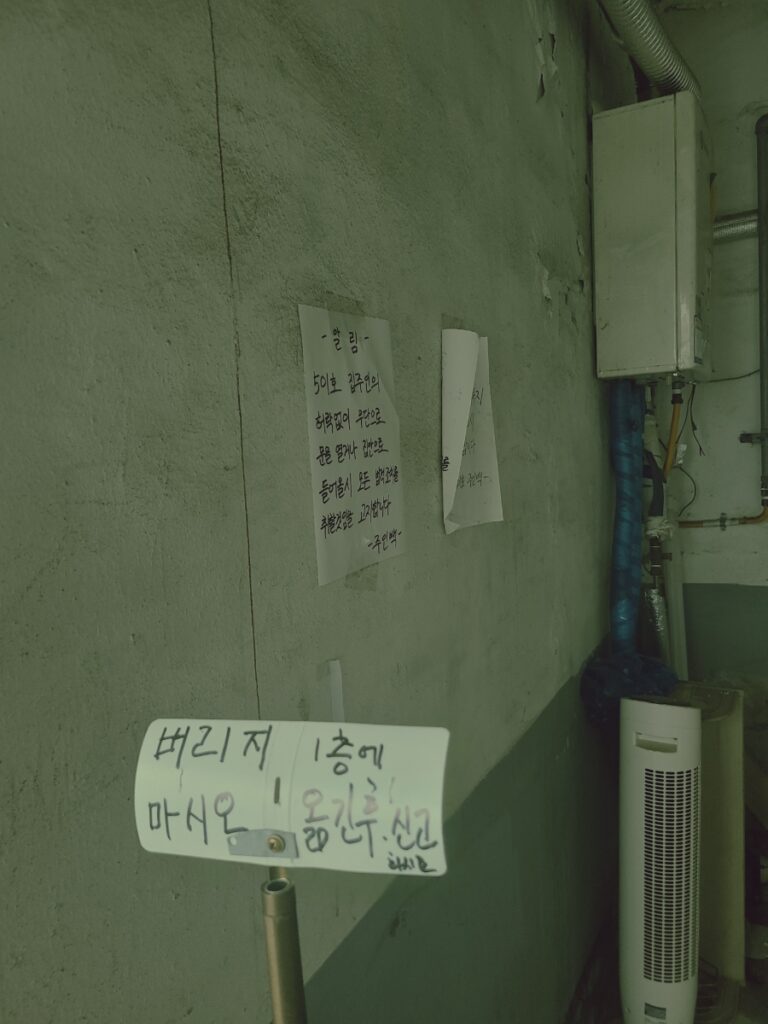 - 알 림 -
501호 집주인의
허락없이 무단으로
문을 열거나 집안으로
들어올시 모든 법적조치를
취할것임을 고지합니다
-주인백-
지
를
주인백-
버리지 1층에
마시오 옮긴후. 신고
하시오